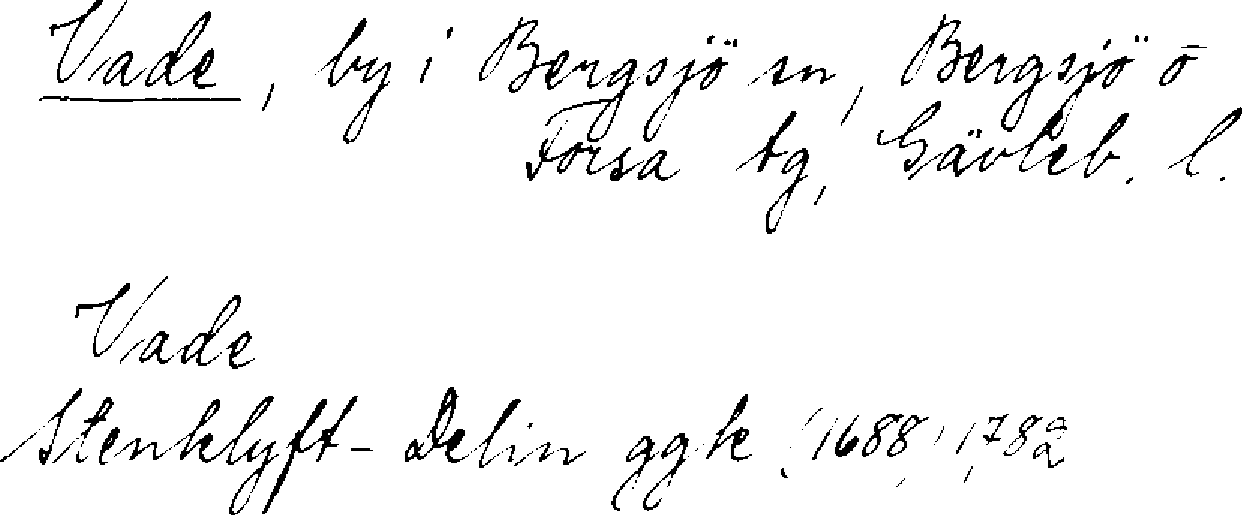 Vade, by i Bergsjö sn, Bergsjö o
Forsa tg, Gävleb. l.
Vade
Stenklyft-Delin ggk (1688) 1782